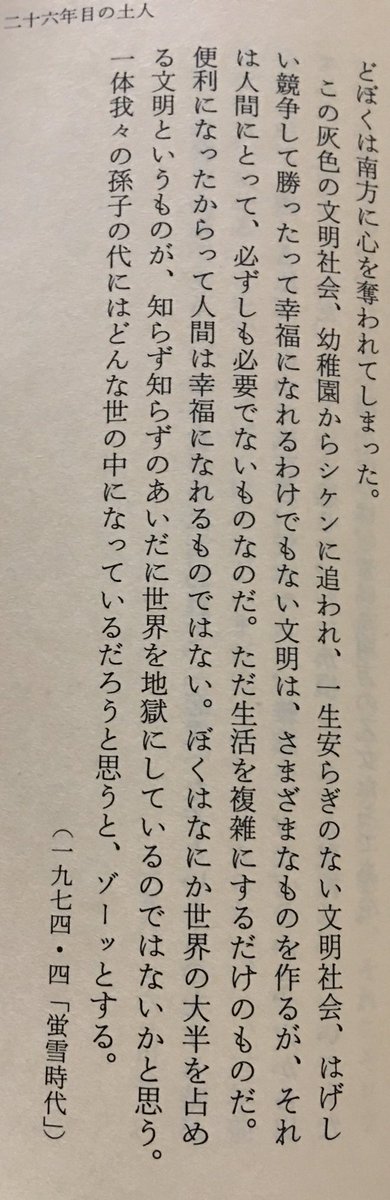 二十六年目の土人
どぼくは南方に心を奪われてしまった。
この灰色の文明社会、幼稚園からシケンに追われ、一生安らぎのない文明社会、はげし
い競争して勝ったって幸福になれるわけでもない文明は、さまざまなものを作るが、それ
は人間にとって、必ずしも必要でないものなのだ。ただ生活を複雑にするだけのものだ。
便利になったからって人間は幸福になれるものではない。ぼくはなにか世界の大半を占め
る文明というものが、知らず知らずのあいだに世界を地獄にしているのではないかと思う。
一体我々の孫子の代にはどんな世の中になっているだろうと思うと、ゾーッとする。
（一九七四・四「蛍雪時代」）